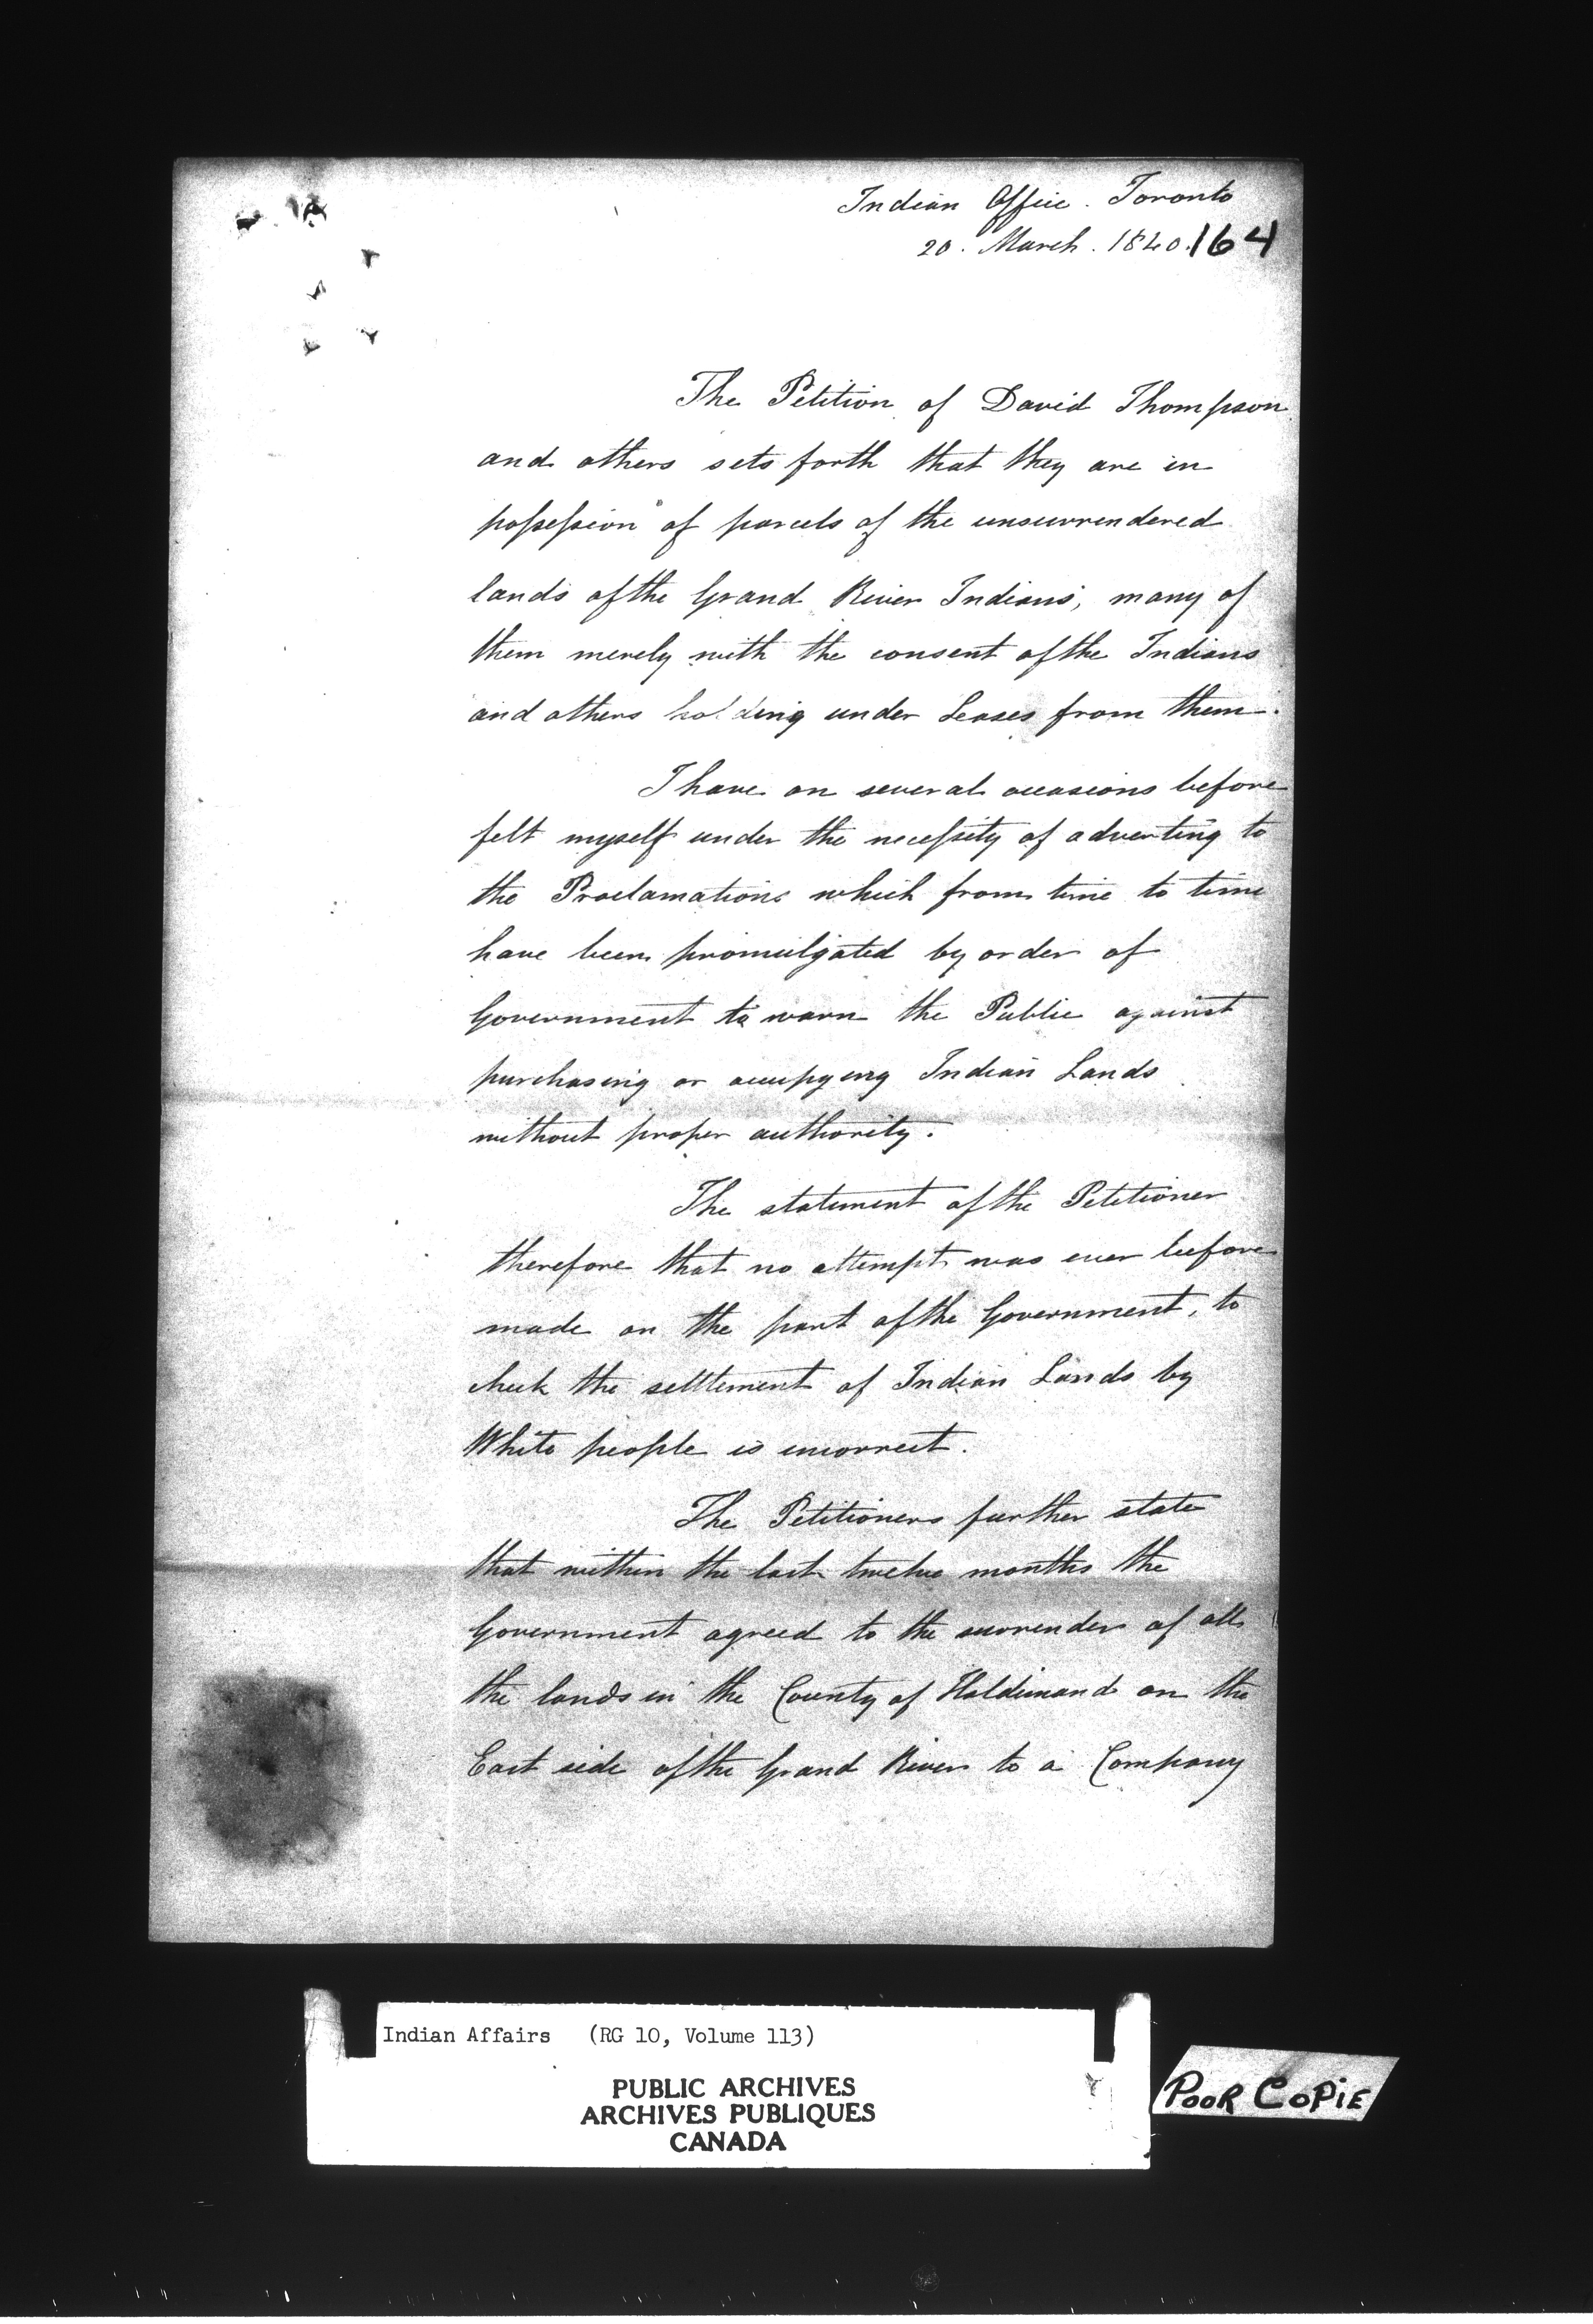 Indian Office. Toronto
20. March. 1840. 164
The Petition of David Thompson
and others sets forth that they are in
possession of parcels of the unsurrendered
lands of the Grand River Indians, many of
them merely with the consent of the Indians
and others holding under Leases from them.
I have on several occasions before
felt myself under the necessity of adverting to
the Proclamations which from time to time
have been promulgated by order of
Government to warn the Public against
purchasing or occupying Indian Lands
without proper authority.
The statement of the Petitioner
therefore that no attempt was ever before
made on the part of the Government, to
check the settlement of Indian Lands by
White people is incorrect.
The Petitioners further state
that within the last twelve months the
Government agreed to the surrender of all
the lands in the County of Haldimand on the
East side of the Grand River to a Company
Indian Affairs (RG 10, Volume 113)
PUBLIC ARCHIVES
ARCHIVES PUBLIQUES
CANADA
POOR COPIE